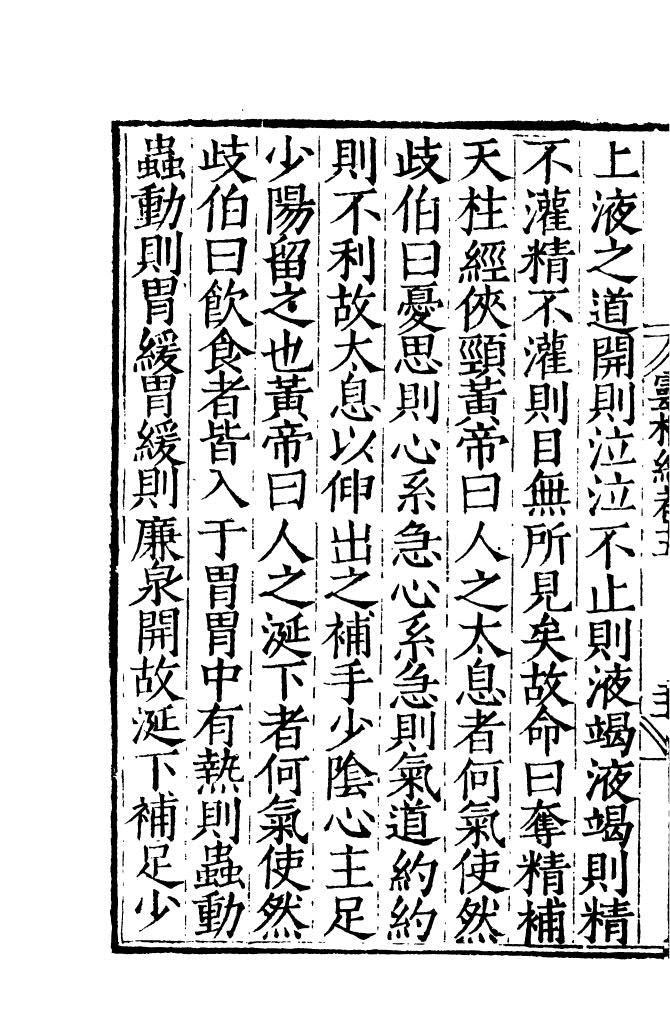 上液之道開則泣泣不止則液竭液竭則精
不灌精不灌則目無所見矣故命曰奪精補
天柱經俠頸黃帝曰人之太息者何氣使然
歧伯曰憂思則心系急心系急則氣道約約
則不利故太息以伸出之補手少陰心主足
少陽留之也黃帝曰人之涎下者何氣使然
歧伯曰飲食者皆入于胃胃中有熱則蟲動
蟲動則胃緩胃緩則廉泉開故涎下補足少